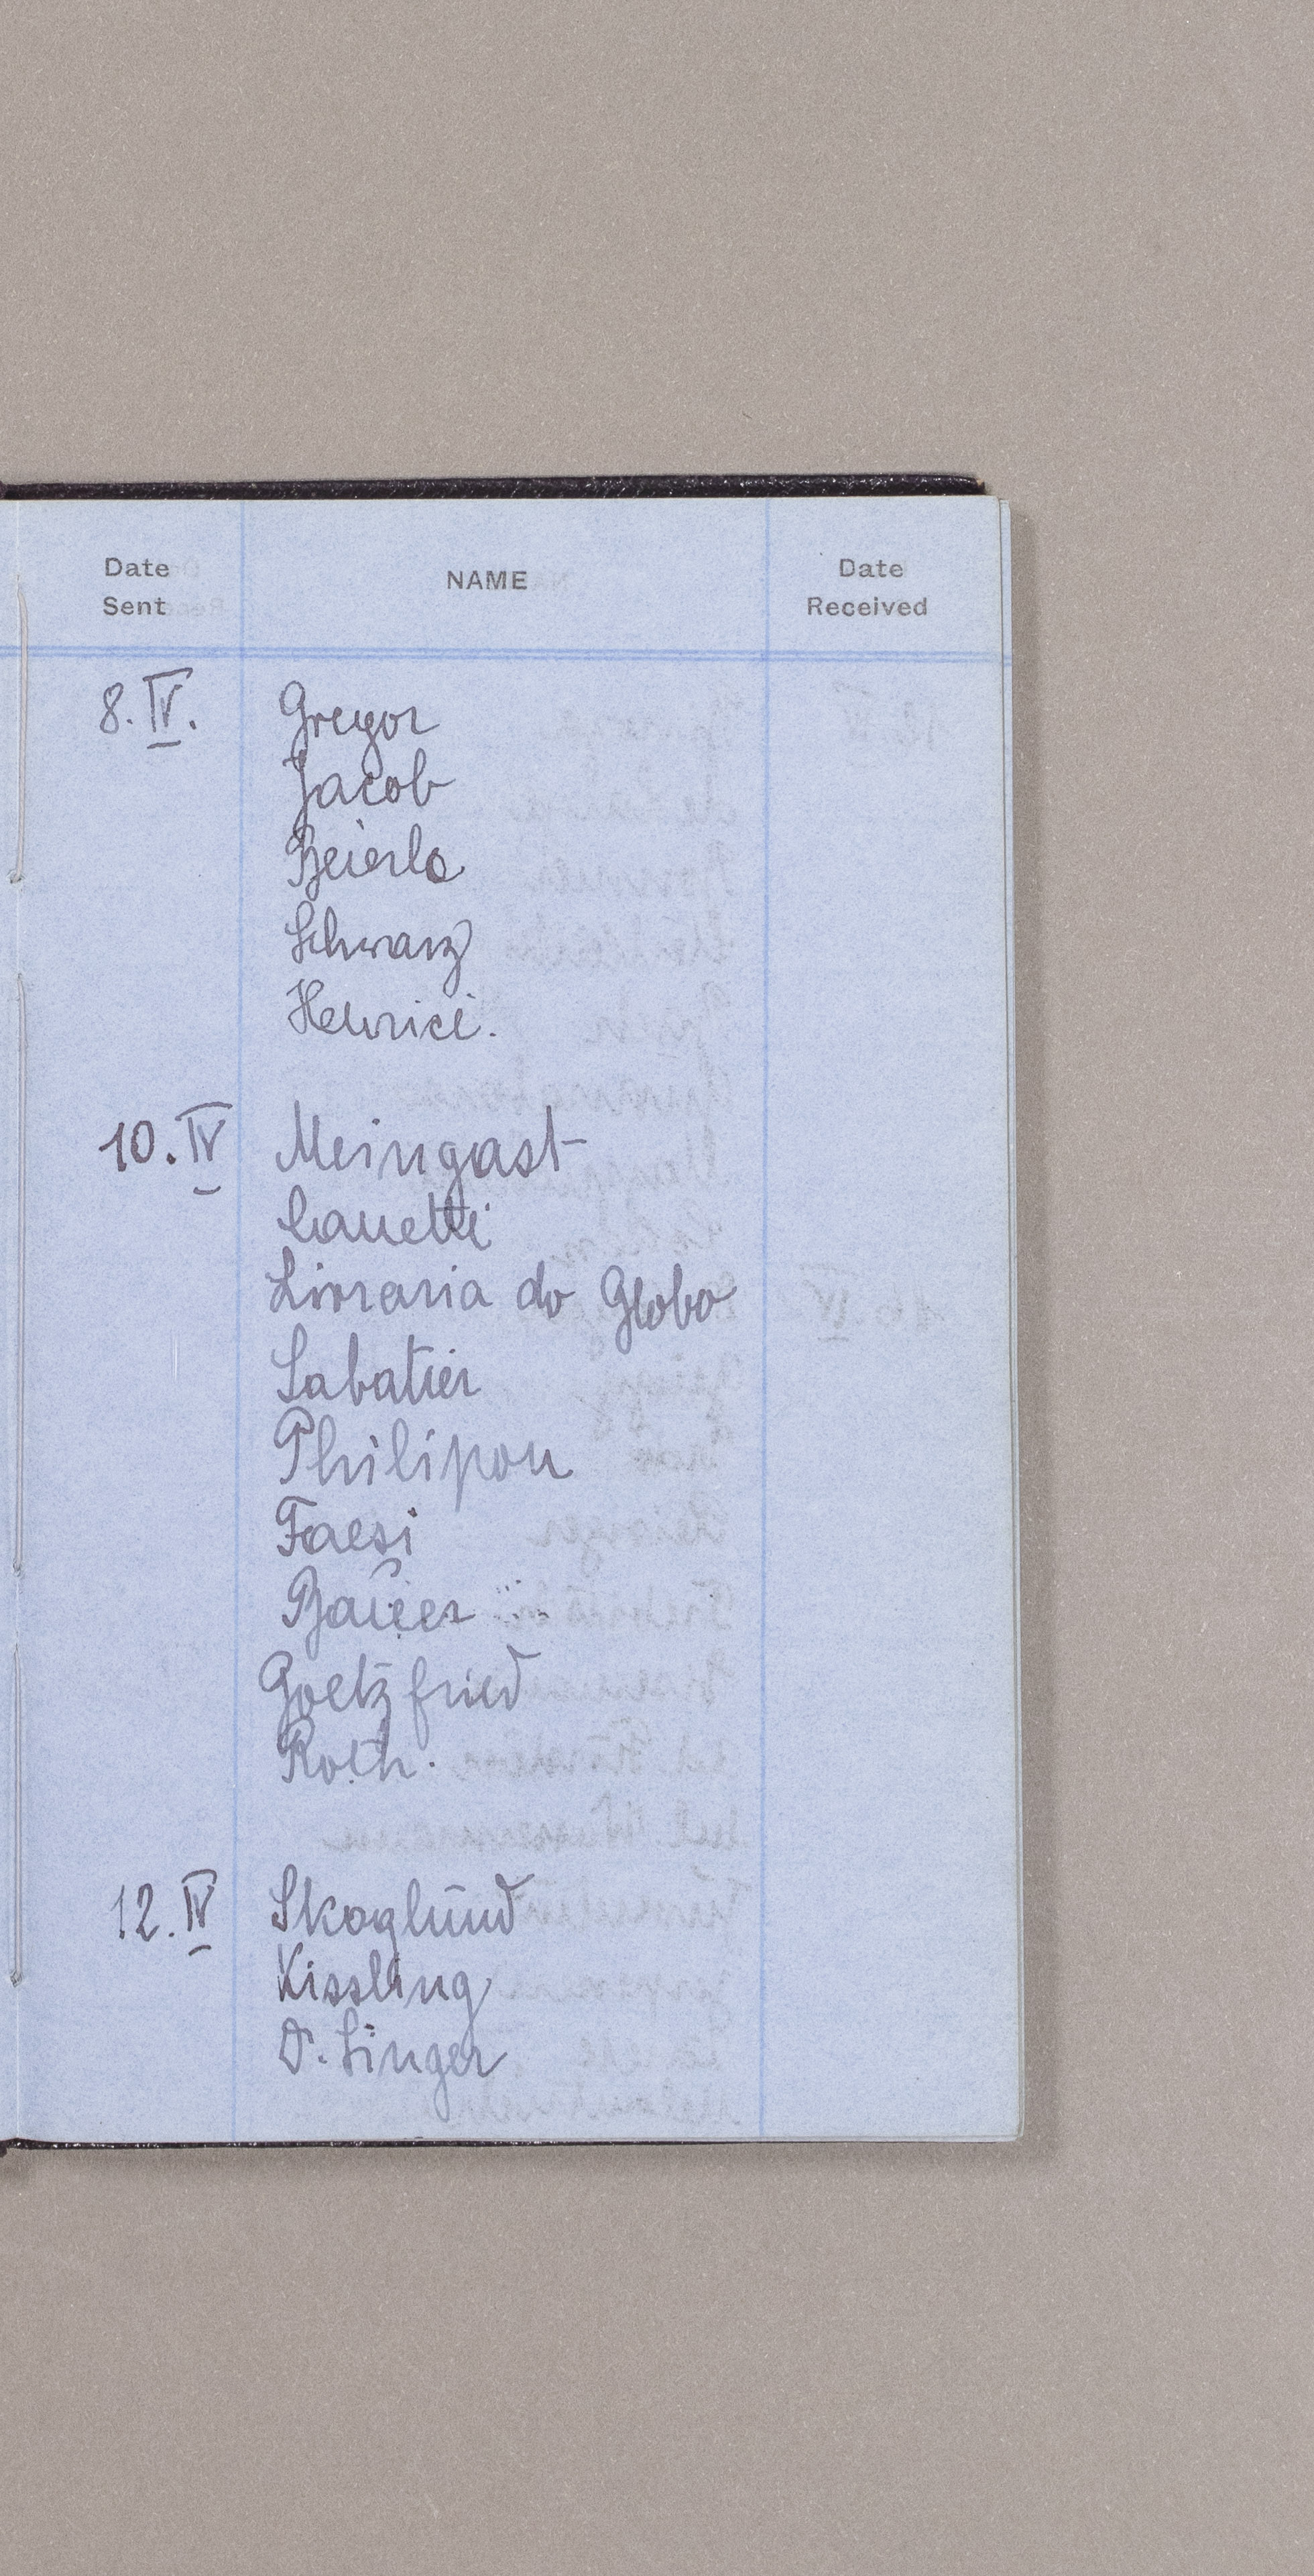 Date Sent NAME Date Received
8. IV. Gregor
Jacob
Beierle
Schwarz
Henrici.
10. IV Meingast
Canetti
Livraria do Globo
Sabatier
Philipon
Faesi
Bauer
Goetzfried
Roth.
12. IV Skoglund
Kissling
Dr. Singer